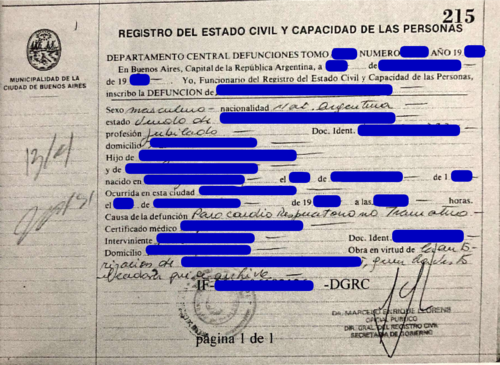 215
1
REGISTRO DEL ESTADO CIVIL Y CAPACIDAD DE LAS PERSONAS
MUNICIPALIDAD DE LA
CIUDAD DE BUENOS AIRES
DEPARTAMENTO CENTRAL DEFUNCIONES TOMO NUMERO AÑO 19
En Buenos Aires, Capital de la República Argentina, a de
de 19 . Yo, Funcionario del Registro del Estado Civil y Capacidad de las Personas,
inscribo la DEFUNCION de
Sexo masculino nacionalidad Nat. Argentina
estado Viudo de
profesión Jubilado Doc. Ident.
domicilio
Hijo de
y de
nacido en el de de 1
Ocurrida en esta ciudad
el . de de 19 a las horas.
Causa de la defunción Paro cardio Respiratorio no Traumático
Certificado médico
Interviniente Doc. Ident.
Domicilio Obra en virtud de
de
que se archiva
IF- -DGRC
OFICIAL PUBLICO
DIR. GRAL. DEL REGISTRO CIVIL
SECRETARIA DE GOBIERNO
página 1 de 1